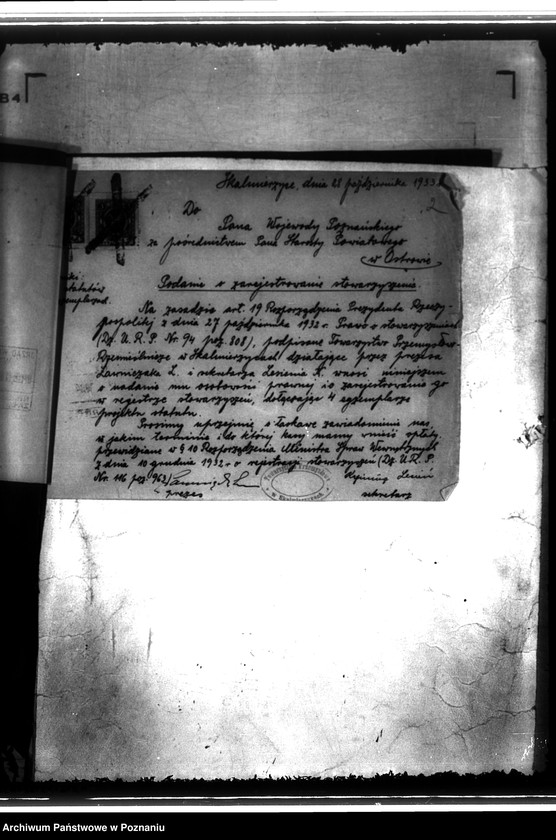 B4
Skalmierzyce, dnia 28 października 1933 r.
2
Do
Pana Wojewody Poznańskiego
za pośrednictwem Pana Starosty Powiatowego
w Ostrowie
Podanie o zarejestrowanie stowarzyszenia.
Na zasadzie art. 19 Rozporządzenia Prezydenta Rzeczy-
pospolitej z dnia 27 października 1932 r. Prawo o stowarzyszeniach
(Dz. U. R. P. Nr. 94 poz. 808), podpisane Towarzystwo Przemysłowo-
Rzemieślnicze w Skalmierzycach działające przez prezesa
Ławniczaka L. i sekretarza K. wnosi niniejszem
o nadanie mu osobowości prawnej i o zarejestrowanie go
w rejestrze stowarzyszeń, dołączając 4 egzemplarze
projektu statutu.
Prosimy uprzejmie o łaskawe zawiadomienie nas,
w jakim terminie i do której kasy mamy wnieść opłaty,
przewidziane w § 10 Rozporządzenia Ministra Spraw Wewnętrznych
z dnia 10 grudnia 1932 r. o rejestracji stowarzyszeń (Dz. U. R. P.
Nr. 116 poz. 963)
prezes
w Skalmierzycach
sekretarz
Archiwum Państwowe w Poznaniu